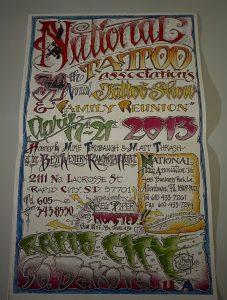 National
TATTOO
association's
34th Annual Tattoo Show
& "FAMILY REUNION"
April 17-21st 2013
Hosted by MIKE TROBAUGH & MATT THRASH
at the BEST WESTERN RAMKOTA HOTEL
2111 NO. LACROSSE ST
RAPID CITY SD 57701
605-
343-8550
NATIONAL
Tattoo Association Inc
485 Business Park Ln
Allentown, PA 18109
610 433-7261
610 433-7294
ROASTED!!
RAPID CITY
SO. DAKOTA USA